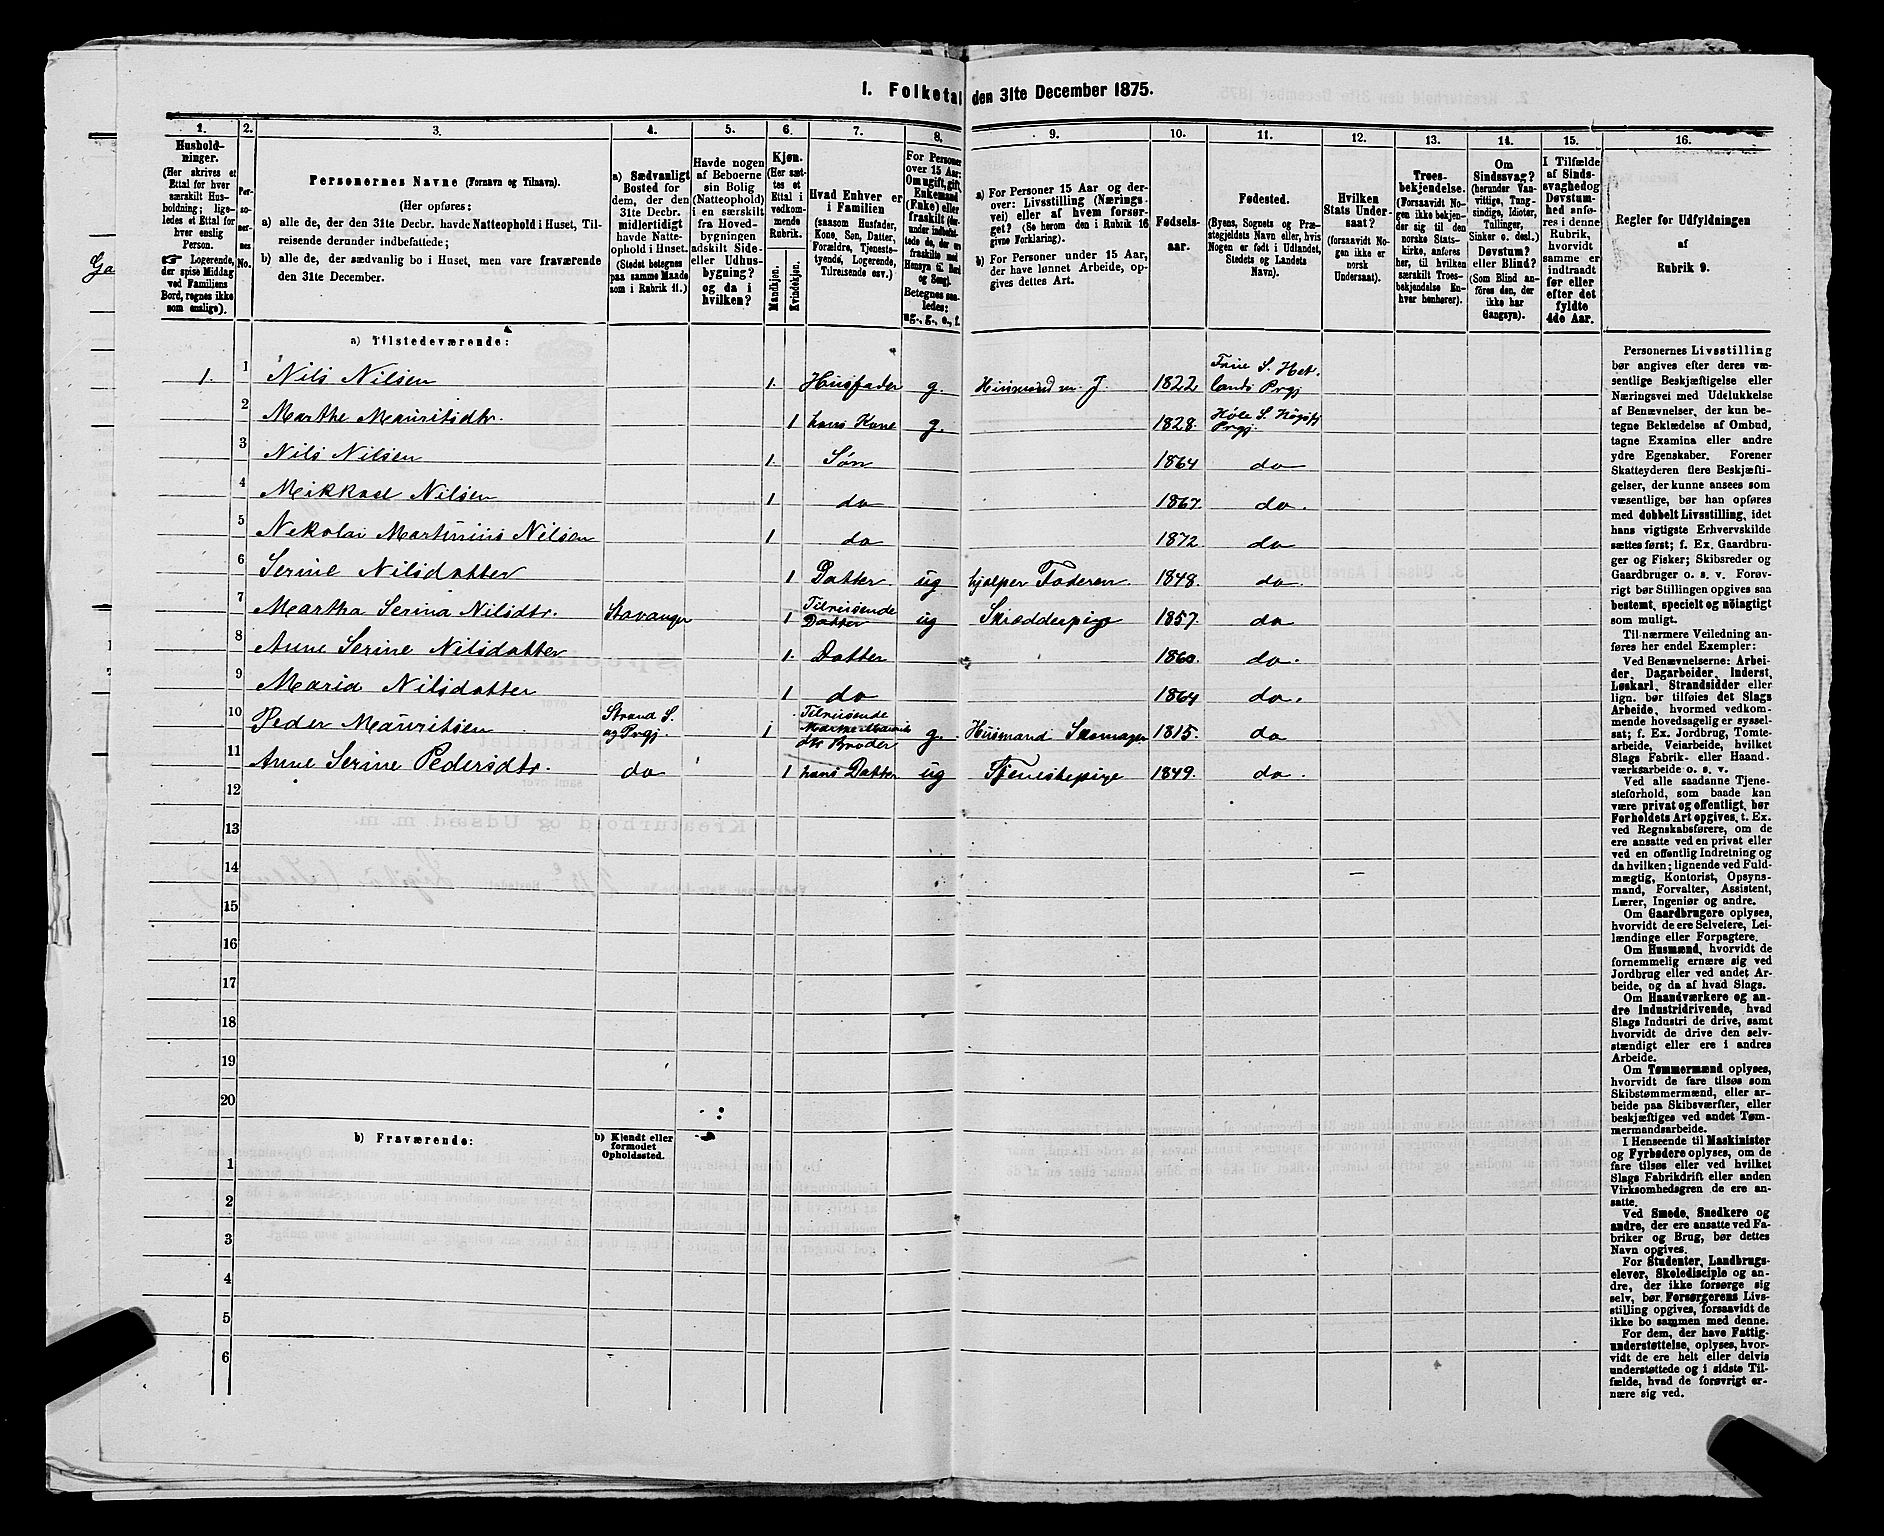 1. Folketal den 31te December 1875.
1. 2. 3. 4. 5. 6. 7. 8. 9. 10. 11. 12. 13. 14. 15. 16.
Hushold-
ninger.
(Her skrives et
Ettal for hver
særskilt Hus-
holdning; lige-
ledes et Ettal for
hver enslig
Person.
☞ Logerende,
der spise Middag
ved Familiens
Bord, regnes ikke
som enslige).
Per-
so-
ner-
nes
No.
Personernes Navne (Fornavn og Tilnavn).
(Her opføres:
a) alle de, der den 31te Decbr. havde Natteophold i Huset, Til-
reisende derunder indbefattede;
b) alle de, der sædvanlig bo i Huset, men vare fraværende
den 31te December.
a) Sædvanligt
Bosted for
dem, der den
31te Decbr.
midlertidigt
havde Natte-
ophold i Huset.
(Stedet betegnes
paa samme Maade
som i Rubrik 11.)
Havde nogen
af Beboerne
sin Bolig
(Natteophold)
i en særskilt
fra Hoved-
bygningen
adskilt Side-
eller Udhus-
bygning?
og da i
hvilken?
Kjøn.
(Her sæt-
tes et
Ettal i
vedkom-
mende
Rubrik.
Mandkjøn.
Kvindekjøn.
Hvad Enhver er
i Familien
(saasom Husfader,
Kone, Søn, Datter,
Forældre, Tjeneste-
tyende, Logerende,
Tilreisende osv.)
For Personer
over 15 Aar:
Om ugift, gift,
Enkemand
(Enke) eller
fraskilt
Betegnes saa-
ledes:
ug., g., e., f.
a) For Personer 15 Aar og der-
over: Livsstilling (Nærings-
vei) eller af hvem forsør-
get? (Se herom den i Rubrik 16
givne Forklaring).
b) For Personer under 15 Aar,
der have lønnet Arbeide, op-
gives dettes Art.
Fødsels-
aar.
Fødested.
(Byens, Sognets og Præ-
stegjeldets Navn eller, hvis
Nogen er født i Udlandet,
Stedets og Landets
Navn).
Hvilken
Stats Under-
saat?
(forsaavidt No-
gen ikke er
norsk
Undersaat).
Troes-
bekjendelse.
(Forsaavidt No-
gen ikke bekjen-
der sig til den
norske Stats-
kirke, anføres
her, til hvilken
særskilt Troes-
bekjendelse En-
hver henhører).
Om
Sindssvag?
(herunder Van-
vittige, Tung-
sindige, Idioter,
Tullinger,
Sinker o. desl.)
Døvstum?
eller Blind?
(Som Blind an-
føres den, der
ikke har
Gangsyn).
I Tilfælde
af Sinds-
svaghed og
Døvstum-
hed anfø-
res i denne
Rubrik,
hvorvidt
samme er
indtraadt
før eller
efter det
fyldte
4de Aar.
Regler for Udfyldningen
af
Rubrik 9.
a) Tilstedeværende:
1. 1 Nils Nilsen 1. Husfader g. Husmand m. J. 1822 Frue S. Het-
lands Prgj
2 Marthe Mauritsdtr. 1 hans Kone g. 1828. Høle S. Høgsfj
Prgj.
3 Nils Nilsen 1. Søn 1864 do
4 Mikkael Nilsen 1 do 1867. do.
5 Nekolai Martinius Nilsen 1 do 1872 do
6 Serine Nilsdatter 1 Datter ug hjælper Faderen 1848. do
7 Martha Serina Nilsdtr. Stavanger 1 Tilreisende
Datter ug Skrædderpige 1857. do
8 Anne Serine Nilsdatter 1. Datter 1860. do.
9 Maria Nilsdatter 1 do 1864 do.
10 Peder Mauritsen Strand S.
og Prgj 1 Tilreisende
Marthe Maurits
dtr Broder g. Husmand Skomager 1815. do
11 Anne Serine Pedersdtr. do 1 hans Datter ug Tjenestepige 1849. do.
12
13
14
15
16
17
18
19
20
b) Fraværende:
b) Kjendt eller
formodet
Opholdssted.
1
2
3
4
5
6
Personernes Livsstilling
bør angives efter deres væ-
sentlige Beskjæftigelse eller
Næringsvei med Udelukkelse
af Benævnelser, der kun be-
tegne Beklædelse af Ombud,
tagne Examina eller andre
ydre Egenskaber. Forener
Skatteyderen flere Beskjæfti-
gelser, der kunne ansees som
væsentlige, bør han opføres
med dobbelt Livsstilling, idet
hans vigtigste Erhvervskilde
sættes først; f. Ex. Gaardbru-
ger og Fisker; Skibsreder og
Gaardbruger o. s. v. Forøv-
rigt bør Stillingen opgives saa
bestemt, specielt og nøiagtigt
som muligt.
Til nærmere Veiledning an-
føres her endel Exempler:
Ved Benævnelserne: Arbei-
der, Dagarbeider, Inderst,
Løskarl, Strandsidder eller
lign. bør tilføies det Slags
Arbeide, hvormed vedkom-
mende hovedsagelig er syssel-
sat; f. Ex. Jordbrug, Tomte-
arbeide, Veiarbeide, hvilket
Slags Fabrik- eller Haand-
værksarbeide o. s. v.
Ved alle saadanne Tjene-
steforhold, som baade kan
være privat og offentligt, bør
Forholdets Art opgives, t. Ex.
ved Regnskabsførere, om de
ere ansatte ved en privat eller
ved en offentlig Indretning og
da hvilken; lignende ved Fuld-
mægtig, Kontorist, Opsyns-
mand, Forvalter, Assistent,
Lærer, Ingeniør og andre.
Om Gaardbrugere oplyses,
hvorvidt de ere Selveiere, Lei-
lændinge eller Forpagtere.
Om Husmænd, hvorvidt de
fornemmelig ernære sig ved
Jordbrug eller ved andet Ar-
beide, og da af hvad Slags.
Om Haandværkere og an-
dre Industridrivende, hvad
Slags Industri de drive, samt
hvorvidt de drive den selv-
stændigt eller ere i andres
Arbeide.
Om Tømmermænd oplyses,
hvorvidt de fare tilsøs som
Skibstømmermænd, eller ar-
beide paa Skibsværfter, eller
beskjæftiges ved andet Tøm-
mermandsarbeide.
I Henseende til Maskinister
og Fyrbødere oplyses, om de
fare tilsøs eller ved hvilket
Slags Fabrikdrift eller anden
Virksomhedsgren de ere an-
satte.
Ved Smede, Snedkere og
andre, der ere ansatte ved Fa-
briker og Brug, bør dettes
Navn opgives.
For Studenter, Landbrugs-
elever, Skoledisciple og an-
dre, der ikke forsørge sig
selv, bør Forsørgerens Livs-
stilling opgives, forsaavidt de
ikke bo sammen med denne.
For dem, der have Fattig-
understøttelse, oplyses, hvor-
vidt de ere helt eller delvis
understøttede og i sidste Til-
fælde, hvad de forøvrigt er-
nære sig ved.